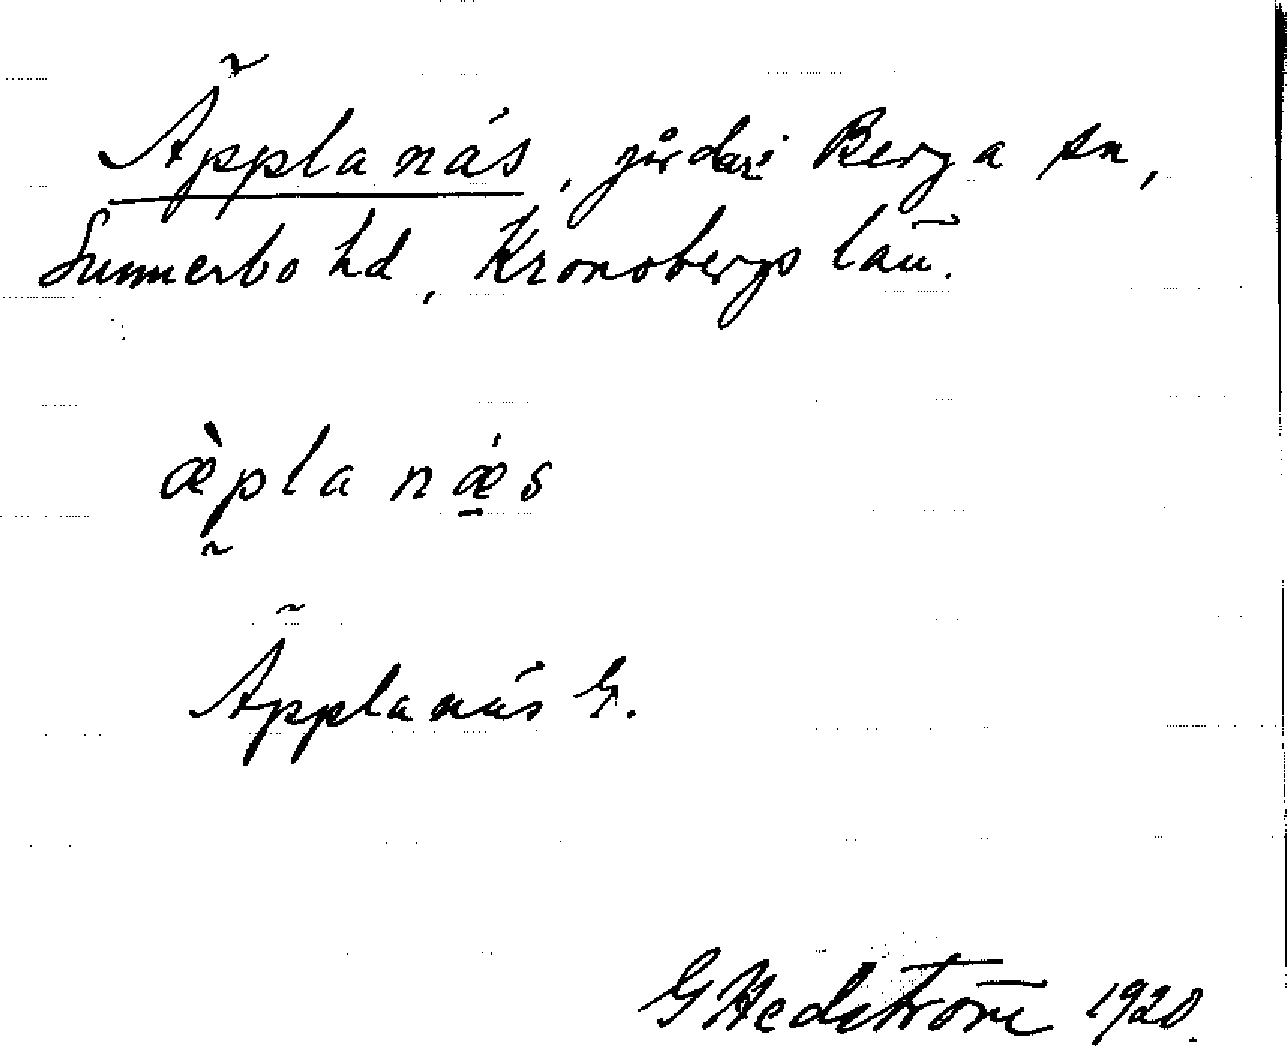 Äpplanäs, gård i Berga sn,
Sunnerbo hd, Kronobergs län.
æ̀pla næ̠s
Äpplanäs G.
G Hedström 1920.